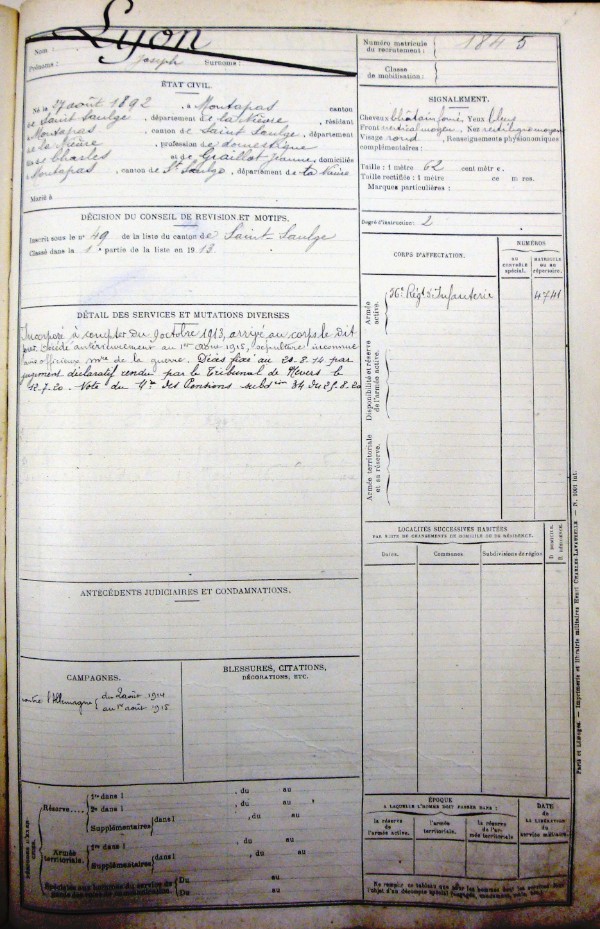 Nom : Lyon
Prénoms : Joseph Surnoms :
Numéro matricule
du recrutement : 1845
Classe
de mobilisation :
ÉTAT CIVIL.
Né le 27 août 1892, à Montapas canton
de Saint Saulge, département de la Nièvre, résidant
Montapas, canton de Saint Saulge, département
de la Nièvre, profession de domestique
Charles et de Graillot Jeanne, domiciliés
Montapas, canton de St Saulge, département de la Nièvre
Marié à
SIGNALEMENT.
Cheveux châtain foncé, Yeux bleus
Front vertical moyen, Nez rectiligne moyen
Visage rond, Renseignements physionomiques
complémentaires :
Taille : 1 mètre 62 centimètres.
Taille rectifiée : 1 mètre cm res.
Marques particulières :
Degré d'instruction : 2
DÉCISION DU CONSEIL DE REVISION ET MOTIFS.
Inscrit sous le n° 49 de la liste du canton de Saint-Saulge
Classé dans la 1e partie de la liste en 1913.
CORPS D'AFFECTATION.
NUMÉROS
AU CONTRÔLE SPÉCIAL.
MATRICULE OU AU RÉPERTOIRE.
Armée active.
Régt d'Infanterie
4741
Disponibilité et réserve de l'armée active.
Armée territoriale et sa réserve.
DÉTAIL DES SERVICES ET MUTATIONS DIVERSES
Incorporé à compter du 9 octobre 1913, arrivé au corps le dit
jour. Décédé antérieurement au 1er août 1915, sépulture inconnue
officieux de la guerre. Décès fixé au 20-8-14 par
jugement déclaratif rendu par le Tribunal de Nevers le
12-7-20. Note du Mre des Pensions 34 du 25-8-20
LOCALITÉS SUCCESSIVES HABITÉES
PAR SUITE DE CHANGEMENTS DE DOMICILE OU DE RÉSIDENCE.
Dates. Communes Subdivisions de région D. DOMICILE. R. RÉSIDENCE.
ANTÉCÉDENTS JUDICIAIRES ET CONDAMNATIONS.
CAMPAGNES.
contre l'Allemagne { du 2 août 1914
au 1er août 1915
BLESSURES, CITATIONS,
DÉCORATIONS, ETC.
Réserve
1re dans l , du au
2e dans l , du au
Supplémentaires dans l , du au
Armée territoriale.
1re dans l , du au
Supplémentaires dans l , du au
Spéciales aux hommes du service de
Du au
Du au
ÉPOQUE
A LAQUELLE L'HOMME DOIT PASSER DANS :
la réserve de l'armée active.
l'armée territoriale.
la réserve de l'armée territoriale
DATE
de
LA LIBÉRATION
du
service militaire.
Ne remplir ce tableau que pour les hommes dont les services font
l'objet d'un décompte spécial
Paris et Limoges. — Imprimerie et librairie militaires Henri CHARLES-LAVAUZELLE